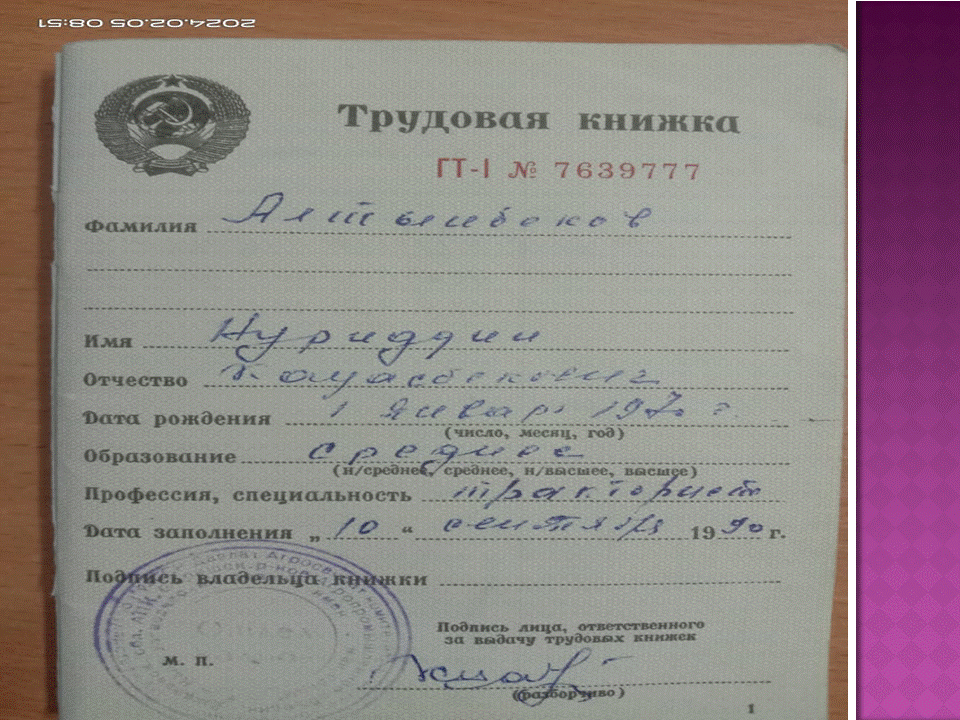 2024.02.05 08:51
Трудовая книжка
ГТ-I № 7639777
Фамилия Алтынбеков
Имя Нуриддин
Отчество
Дата рождения 1 январь 1970 г.
(число, месяц, год)
Образование среднее
(н/среднее, среднее, н/высшее, высшее)
Профессия, специальность тракторист
Дата заполнения „ 10 “ сентября 1990 г.
Подпись владельца книжки
Подпись лица, ответственного
за выдачу трудовых книжек
м. п.
(разборчиво)
1